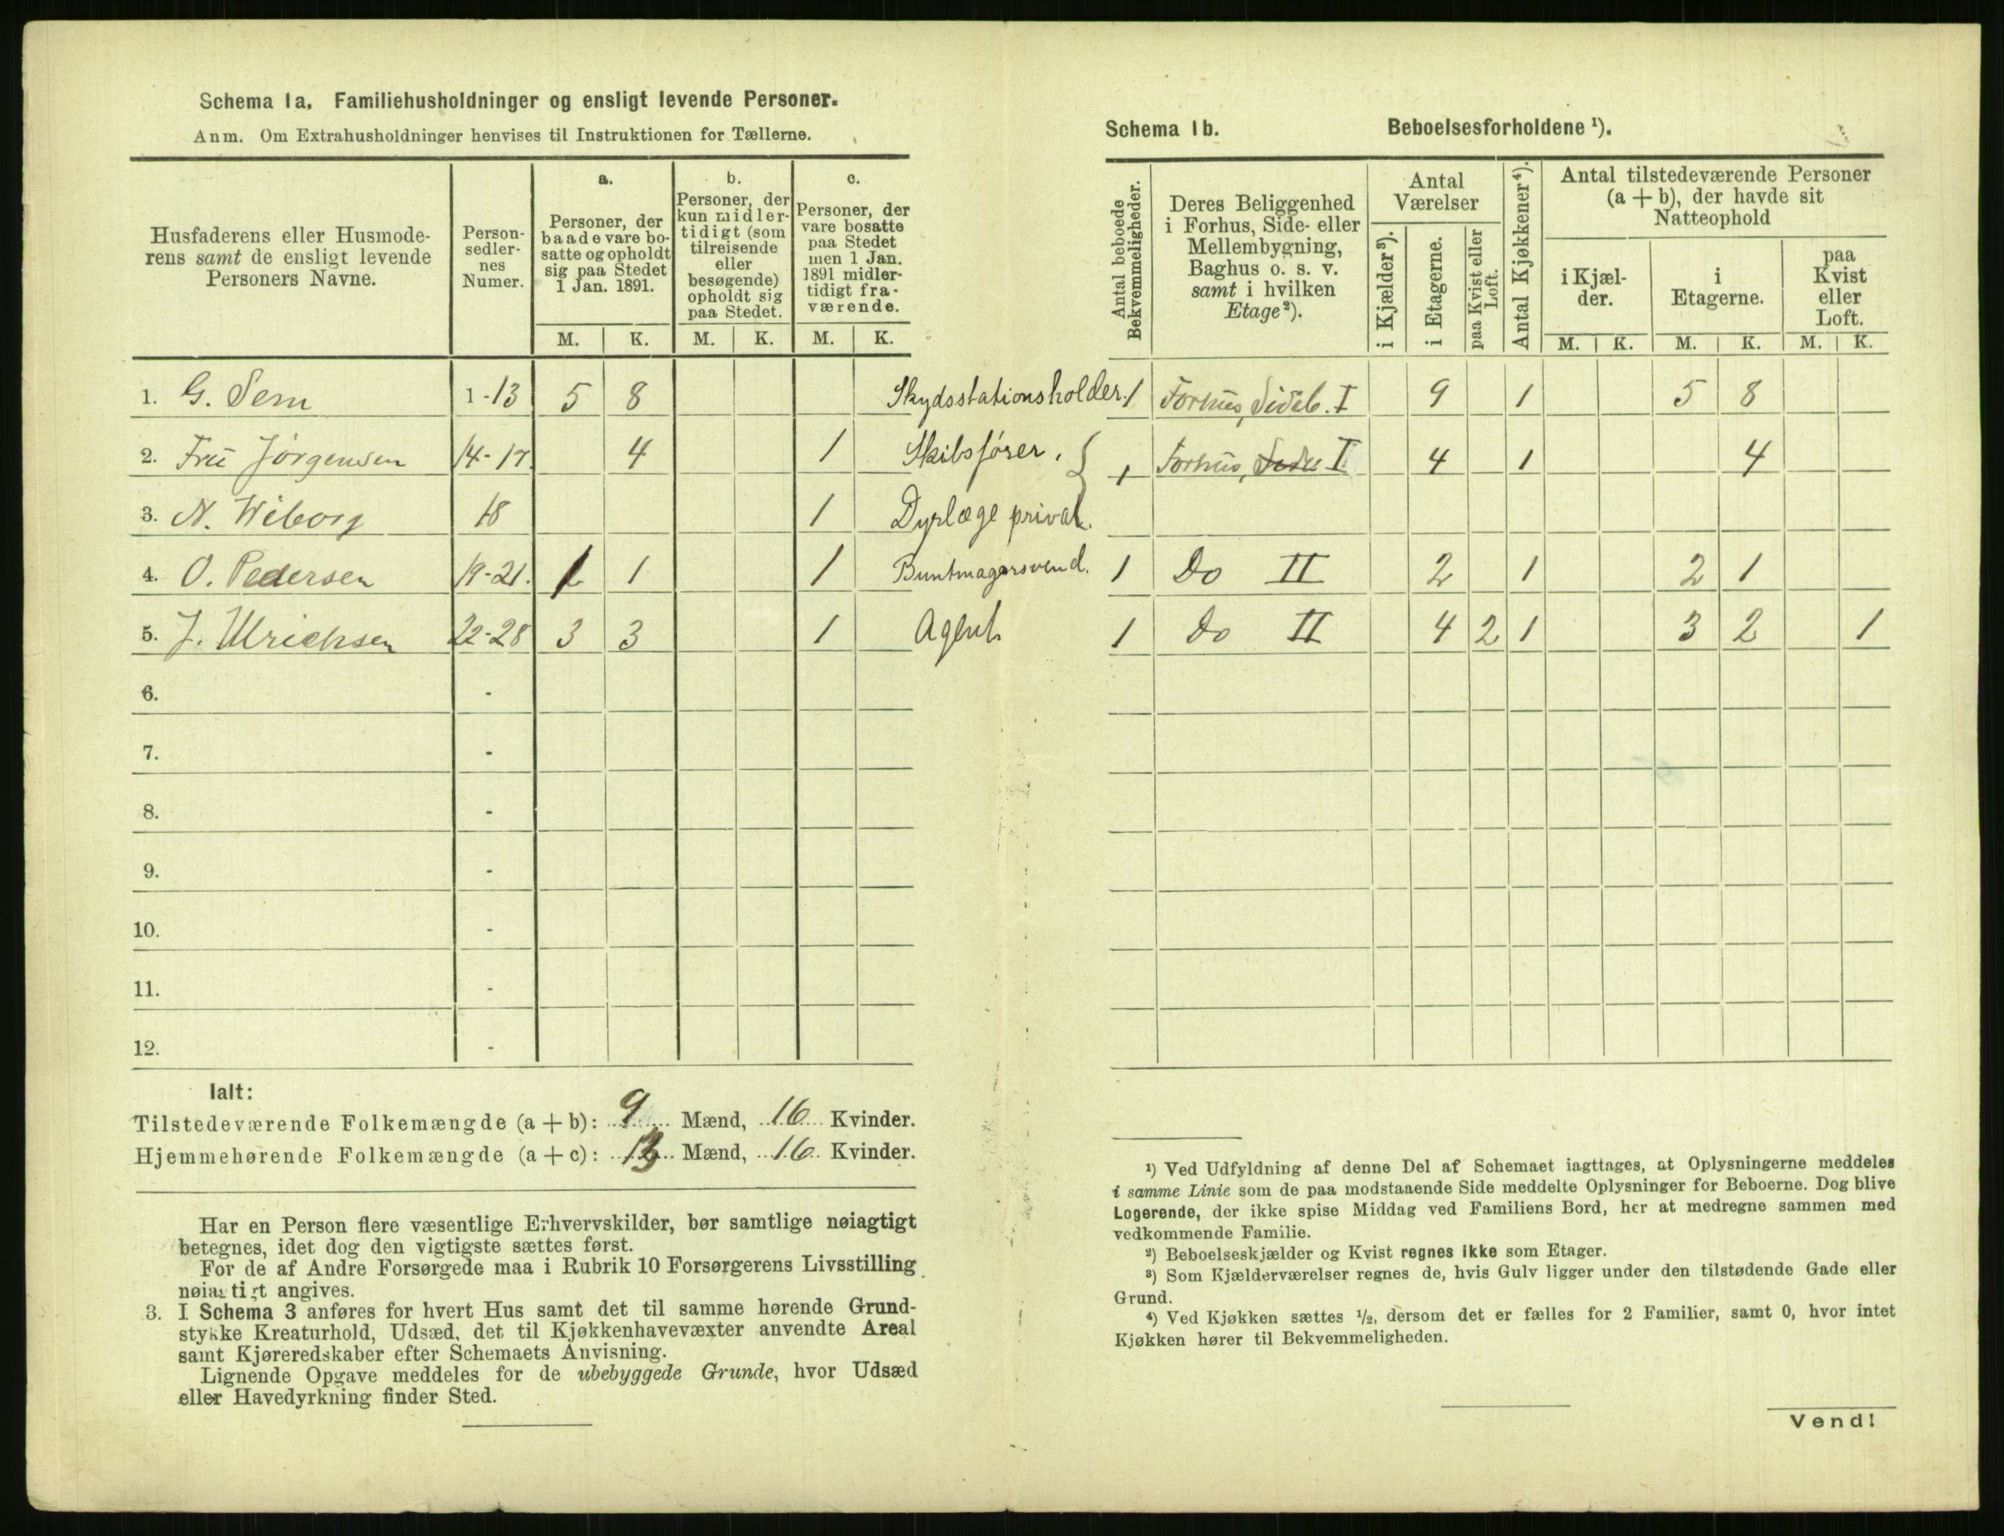 Schema 1a. Familiehusholdninger og ensligt levende Personer.
Anm. Om Extrahusholdninger henvises til Instruktionen for Tællerne.
Husfaderens eller Husmode-
rens samt de ensligt levende
Personers Navne.
Person-
sedler-
nes
Numer.
a.
Personer, der
baade vare bo-
satte og opholdt
sig paa Stedet
1 Jan. 1891.
b.
Personer, der
kun midler-
tidigt (som
tilreisende
eller
besøgende)
opholdt sig
paa Stedet.
c.
Personer, der
vare bosatte
paa Stedet
men 1 Jan.
1891 midler-
tidigt fra-
værende.
M. K. M. K. M. K.
1. G. Sem 1-13 5 8 Skydsstationsholder.
2. Fru Jörgensen 14-17 4 1 Skibsfører.
3. N. Wiborg 18 1 Dyrlæge privat.
4. O. Pedersen 19-21. 1 1 Buntmagersvend.
5. J. Ulrichsen 22-28 3 3 1 Agent
6. -
7. -
8. -
9. -
10. -
11. -
12. -
Ialt:
Tilstedeværende Folkemængde (a + b): 9 Mænd, 16 Kvinder.
Hjemmehørende Folkemængde (a + c): Mænd, 16 Kvinder.
Har en Person flere væsentlige Erhvervskilder, bør samtlige nøiagtigt
betegnes, idet dog den vigtigste sættes først.
For de af Andre Forsørgede maa i Rubrik 10 Forsørgerens Livsstilling
nøiagtigt angives.
3. I Schema 3 anføres for hvert Hus samt det til samme hørende Grund-
stykke Kreaturhold, Udsæd, det til Kjøkkenhavevæxter anvendte Areal
samt Kjøreredskaber efter Schemaets Anvisning.
Lignende Opgave meddeles for de ubebyggede Grunde, hvor Udsæd
eller Havedyrkning finder Sted.
Schema 1b. Beboelsesforholdene ¹).
Antal beboede
Bekvemmeligheder.
Deres Beliggenhed
i Forhus, Side- eller
Mellembygning,
Baghus o. s. v.
samt i hvilken
Etage²).
Antal
Værelser
i Kjælder³).
i Etagerne.
paa Kvist eller
Loft.
Antal Kjøkkener⁴).
Antal tilstedeværende Personer
(a + b), der havde sit
Natteophold
i Kjæl-
der.
i
Etagerne.
paa
Kvist
eller
Loft.
M. K. M. K. M. K.
1 Forhus, Sideb. I 9 1 5 8
1 Forhus, I 4 1 4
1 Do II 2 1 2 1
1 Do II 4 2 1 3 2 1
¹) Ved Udfyldning af denne Del af Schemaet iagttages, at Oplysningerne meddeles
i samme Linie som de paa modstaaende Side meddelte Oplysninger for Beboerne. Dog blive
Logerende, der ikke spise Middag ved Familiens Bord, her at medregne sammen med
vedkommende Familie.
²) Beboelseskjælder og Kvist regnes ikke som Etager.
³) Som Kjælderværelser regnes de, hvis Gulv ligger under den tilstødende Gade eller
Grund.
⁴) Ved Kjøkken sættes ½, dersom det er fælles for 2 Familier, samt 0, hvor intet
Kjøkken hører til Bekvemmeligheden.
Vend!